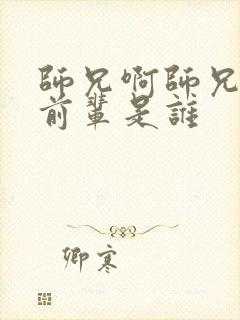 師兄啊師兄
前輩是誰
卿寒